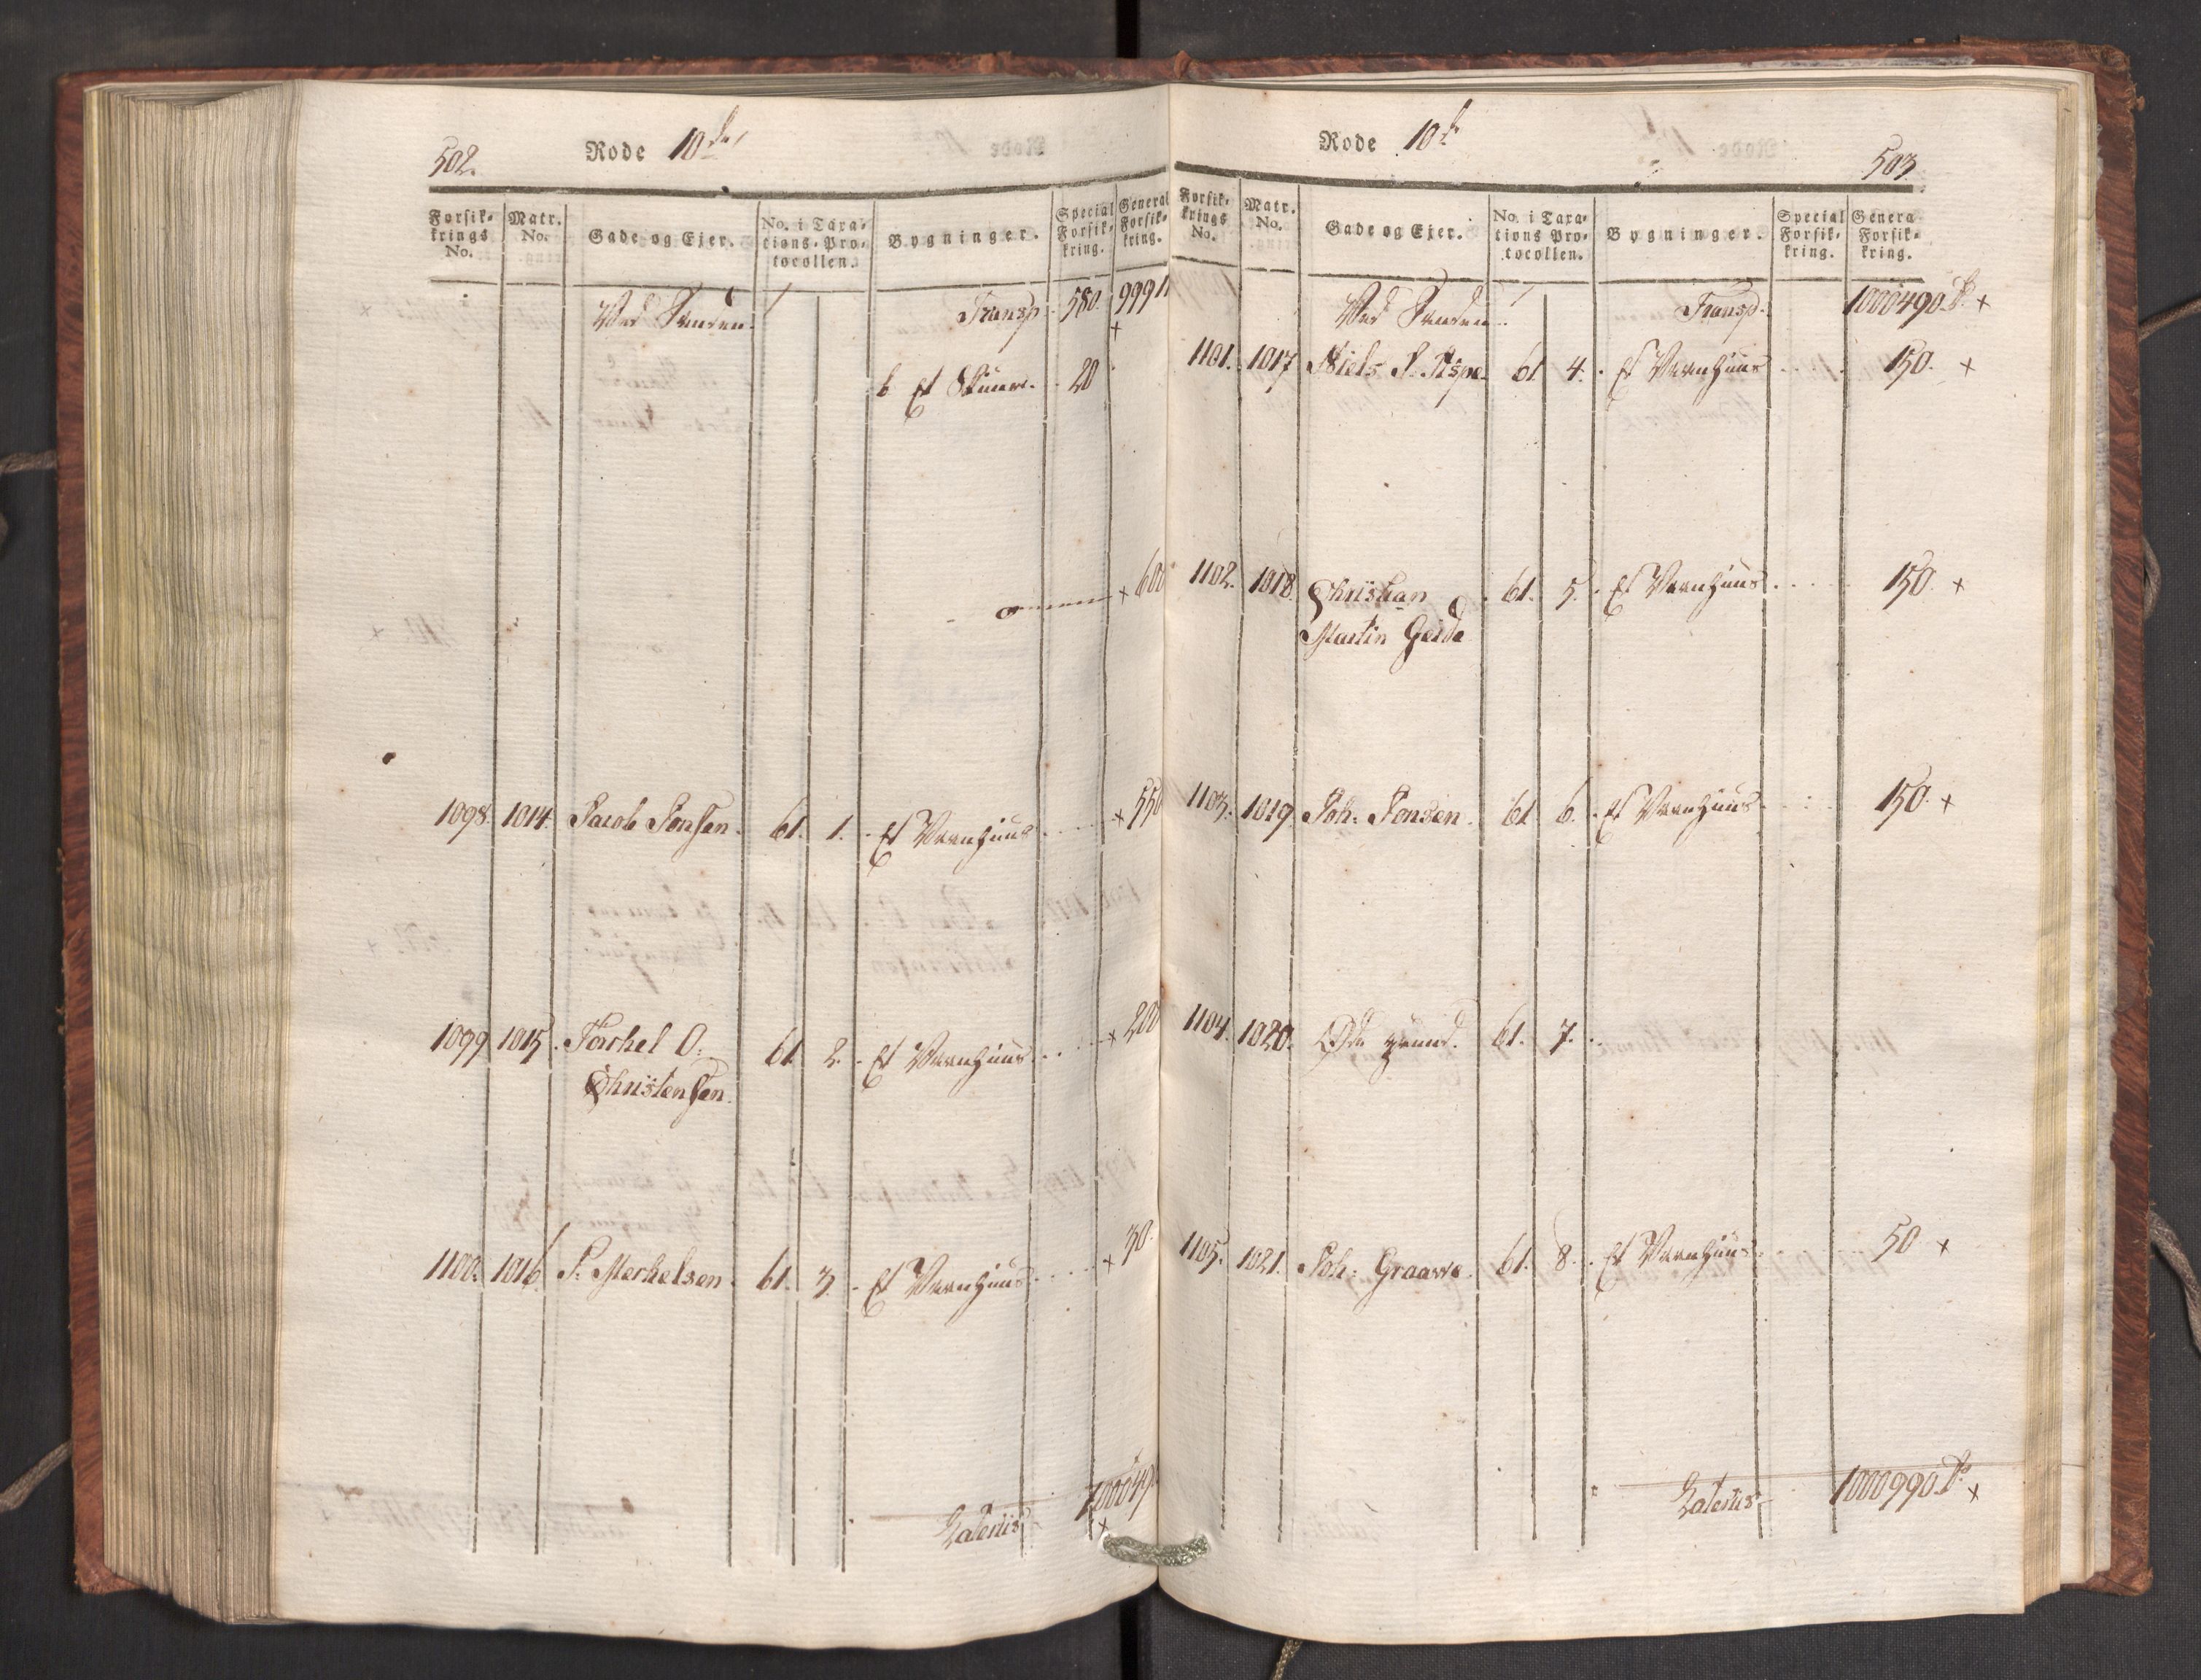 502.
Rode 10de
Forsik-krings No. Matr. No. Gade og Ejer. No. i Taxa-tions-Pro-tocollen. Bygninger. Special Forsik-kring. General Forsik-kring.
Ved Stranden. Transp: 580. 9991
b Et Skuur. 20
600
1098. 1014. Jacob Jonsen. 61. 1. Et Vaanhuus 550
1099 1015. Torkel O: 61. 2. Et Vaanhuus 200
Christensen.
1100. 1016 P: Merkelsen. 61. 3. Et Vaanhuus 30.
Laterus 100049
Rode 10de
503.
Forsik-krings No. Matr. No. Gade og Ejer. No. i Taxa-tions Pro-tocollen. Bygninger. Special Forsik-kring. Genera Forsik-kring.
Ved Stranden. Transp: 1000490 +
1101. 1017 Niels P. Aspe. 61 4. Et Vaanhuus 150. +
1102. 1018. Christian 61. 5. Et Vaanhuus 150 +
Martin Geide
1103. 1019. Joh: Jonsen. 61 6. Et Vaanhuus 150. +
1104. 1020. Øde grund. 61. 7.
1105. 1021. Joh: Graawe. 61. 8. Et Vaanhuus 50 +
Laterus 1000990 +